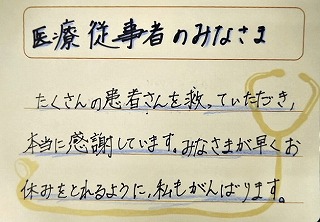 医療従事者のみなさま
たくさんの患者さんを救っていただき,
本当に感謝しています。みなさまが早くお
休みをとれるように,私もがんばります。